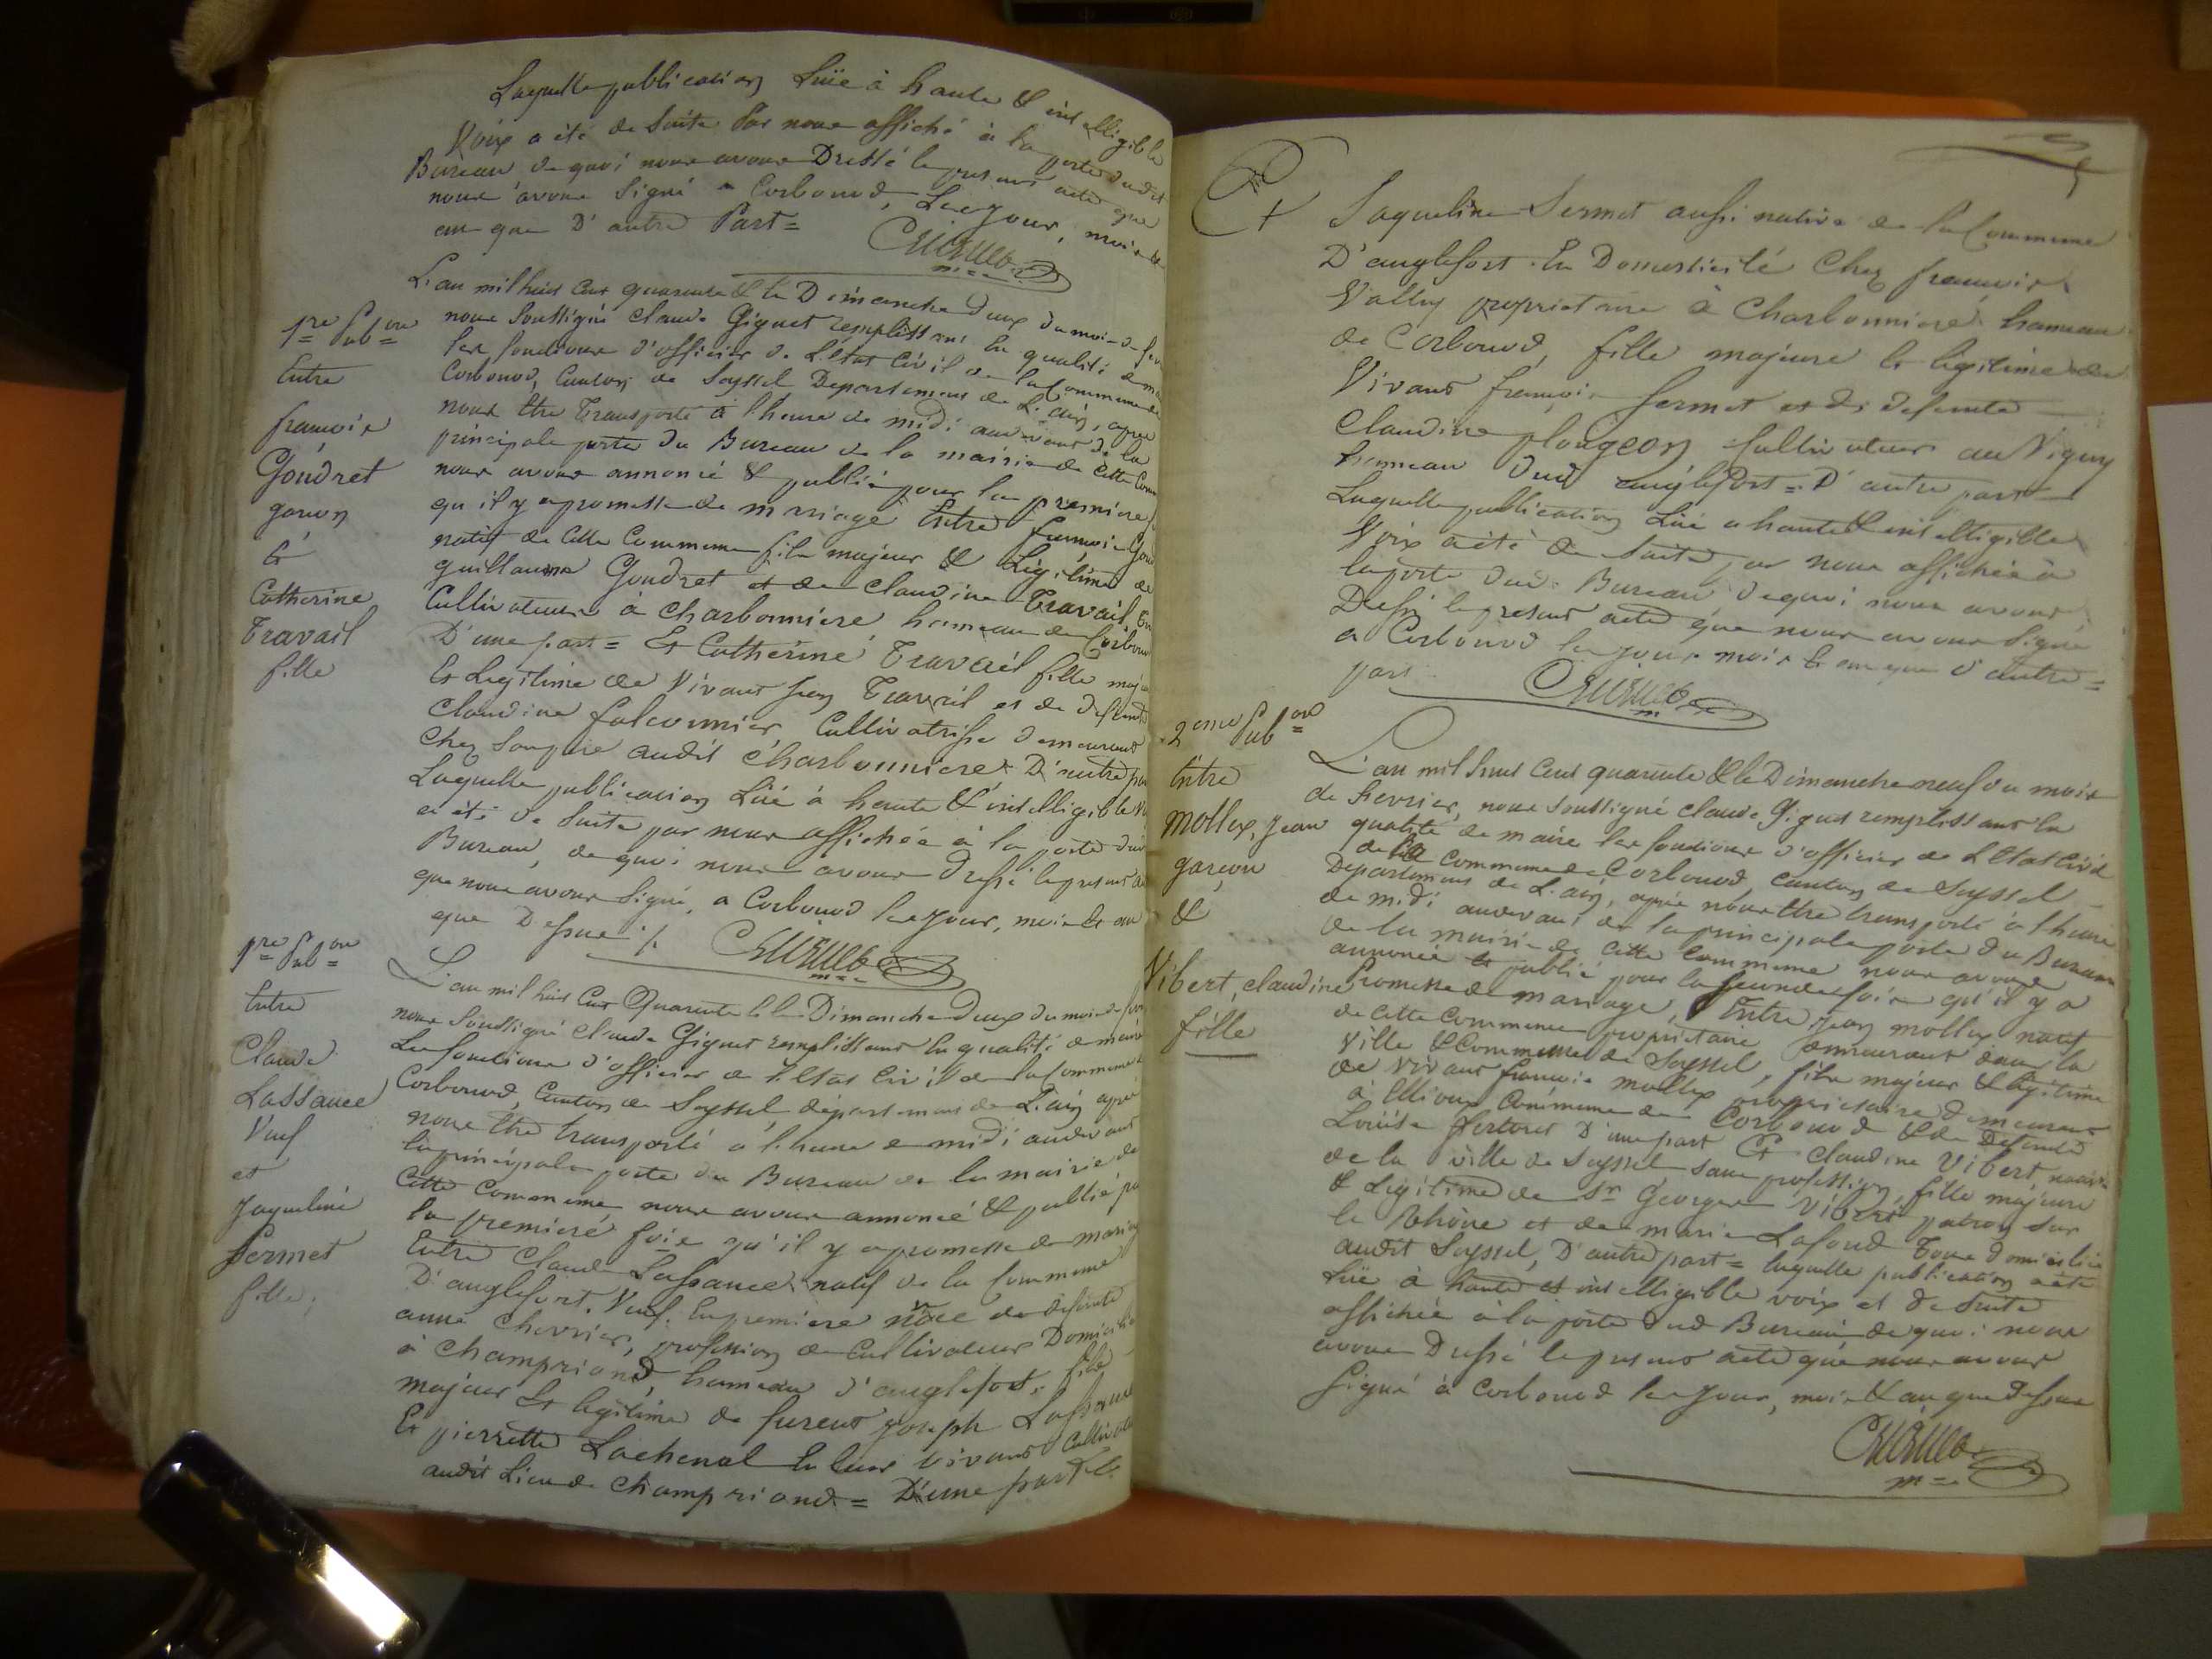 Laquelle publication Lüe à haute & intelligible
Voix a été de Suite Par nous affiché à la porte dudit
Bureau de quoi nous avons Dressé le present acte que
nous avons Signé a Corbonod, Les jour, mois &
an que D'autre Part =
L'an mil huit Cent quarante & le Dimanche Deux du mois de
1re Pubon
nous Soussigné Claude Giguet remplissant la qualité de
Entre
les fonctions d'officier de L'état Civil de la Commune de
Corbonod, Canton de Seyssel Departement de L'ain, après
françois
nous être Transporté à l'heure de midi audevant de la
Goudret
principale porte du Bureau de la mairie de Cette
garçon
nous avons annoncé & publié pour la premiere
&
qu'il y a promesse de mariage Entre françois
Catherine
natif de Cette Commune fils majeur & Légitime de
Travail
guillaume Goudret et de Claudine Travail
fille
Cultivateurs à Charbonniere hameau de
D'une part = Et Catherine Travail fille
Et Legitime de Vivant Travail et de
Claudine falconnier Cultivatrisse demeurant
Chez Son père audit Charbonniere D'autre
Laquelle publication Lüe à haute & intelligible
a été de Suite par nous affichée à la porte
Bureau, de quoi nous avons dressé le present
que nous avons Signé, a Corbonod les jour, mois & an
que Dessus ./.
1re Pubon
Entre
Claude
Lassance
Veuf
et
Jaqueline
fermet
fille
L'an mil huit Cent Quarante & le Dimanche Deux du mois de
nous Soussigné Claude Giguet remplissant la qualité de maire
Les fonctions d'officier de l'Etat Civil de la Commune
Corbonod, Canton de Seyssel, département de L'ain après
nous être transporté à l'heure de midi audevant
la principale porte du Bureau de la mairie de
Cette Commune nous avons annoncé & publié
la premiere fois qu'il y a promesse de
Entre Claude Lassance natif de la Commune
D'anglefort, Veuf En premiere nôce de defunte
anne Chevrier, profession de Cultivateur
à Champriond hameau d'anglefort, fils
majeur & légitime de furent joseph
Et pierrette Lachenal En leur vivant
audit Lieu de Champriond = D'une part
Et
Jaqueline Fermet aussi native de la Commune
D'anglefort En Domesticité Chez françois
Vallin propriétaire à Charbonniere hameau
de Corbonod, fille majeure & légitime de
Vivant françois fermet et de defunte
Claudine plongeon Cultivateur au Vigny
hameau dud anglefort = D'autre part
Laquelle publication Lüe a haute & intelligible
Voix a été de Suite par nous affichée à
la porte dud. Bureau dequoi nous avons
Dressé le present acte que nous avons Signé
a Corbonod les jour mois & an que d'autre =
part
2eme Pubon
Entre
Mollex, Jean
garçon
&
Vibert, claudine
fille
L'an mil huit Cent quarante & le Dimanche neuf du mois
de fevrier, nous Soussigné Claude Giguet remplissant la
qualité de maire les fonctions d'officier de L'Etat Civil
de la Commune de Corbonod, Canton de Seyssel
Departement de L'ain, après nous être transporté à l'heure
de midi audevant de la principale porte du Bureau
de la mairie de Cette Commune nous avons
annoncé & publié pour la seconde fois qu'il y a
Promesse de mariage, Entre jean mollex natif
de Cette Commune propriétaire demeurant dans la
Ville & Commune de Seyssel, fils majeur & légitime
de vivant françois mollex propriétaire demeurant
à Elloux Commune de Corbonod & de Defunte
Louise D'une part Et Claudine Vibert, native
de la Ville de Seyssel Sans profession, fille majeure
& Légitime de Sr George Vibert patron Sur
le Rhône et de marie Lafond Tous domiciliés
audit Seyssel, D'autre part = laquelle publication a été
Lüe à haute et intelligible voix et de Suite
affichée à la porte dud Bureau de quoi nous
avons Dressé le present acte que nous avons
Signé à Corbonod les jour, mois & an que dessus